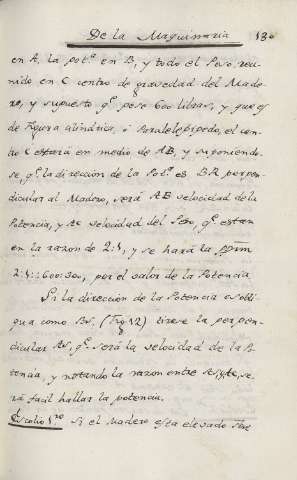 De la Maquinaria 130
en A, la pot.ª en B, y todo el Peso, reu-
nido en C centro de gravedad del Made-
ro, y supuesto q.e pese 600 libras, y que es
de Figura cilindrica, ò Paralelepipedo, el cen-
tro C estará en medio de AB, y suponiendo-
se, q.e la direccion de la Pot.ª es BR, perpen-
dicular al Madero, será AB velocidad de la
Potencia, y AC velocidad del Peso, q.e estan
en la razon de 2:1, y se hará la
2:1::600:300, por el valor de la Potencia
Si la direccion de la Potencia es obli-
qua como BS, (Fig 12) tirese la perpen-
dicular AS, q.e será la velocidad de la P-
tencia, y notando la razon entre se-
rá facil hallar la potencia.
Escolio 1.ro Si el Madero esta elevado